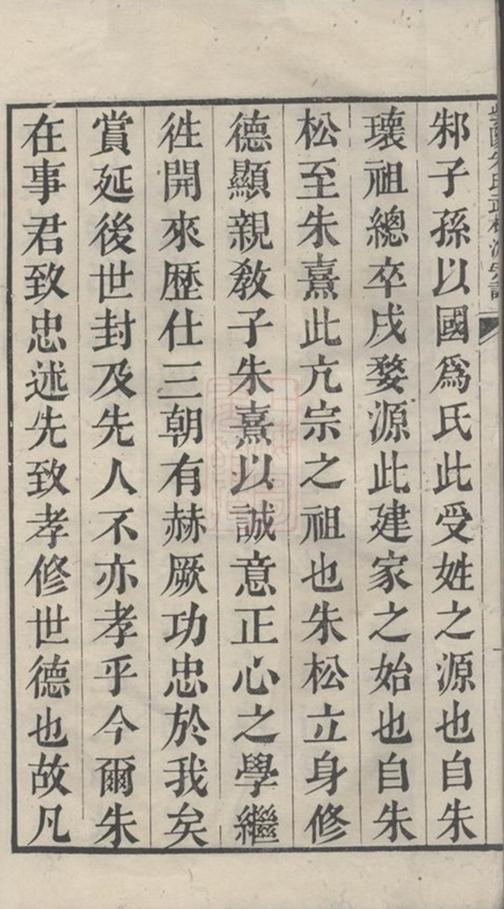 邾子孫以國爲氏此受姓之源也自朱
瓌祖總卒戌婺源此建家之始也自朱
松至朱熹此亢宗之祖也朱松立身修
德顯親敎子朱熹以誠意正心之學繼
徃開來歴仕三朝有赫厥功忠於我矣
賞延後世封及先人不亦孝乎今爾朱
在事君致忠述先致孝修世德也故凡